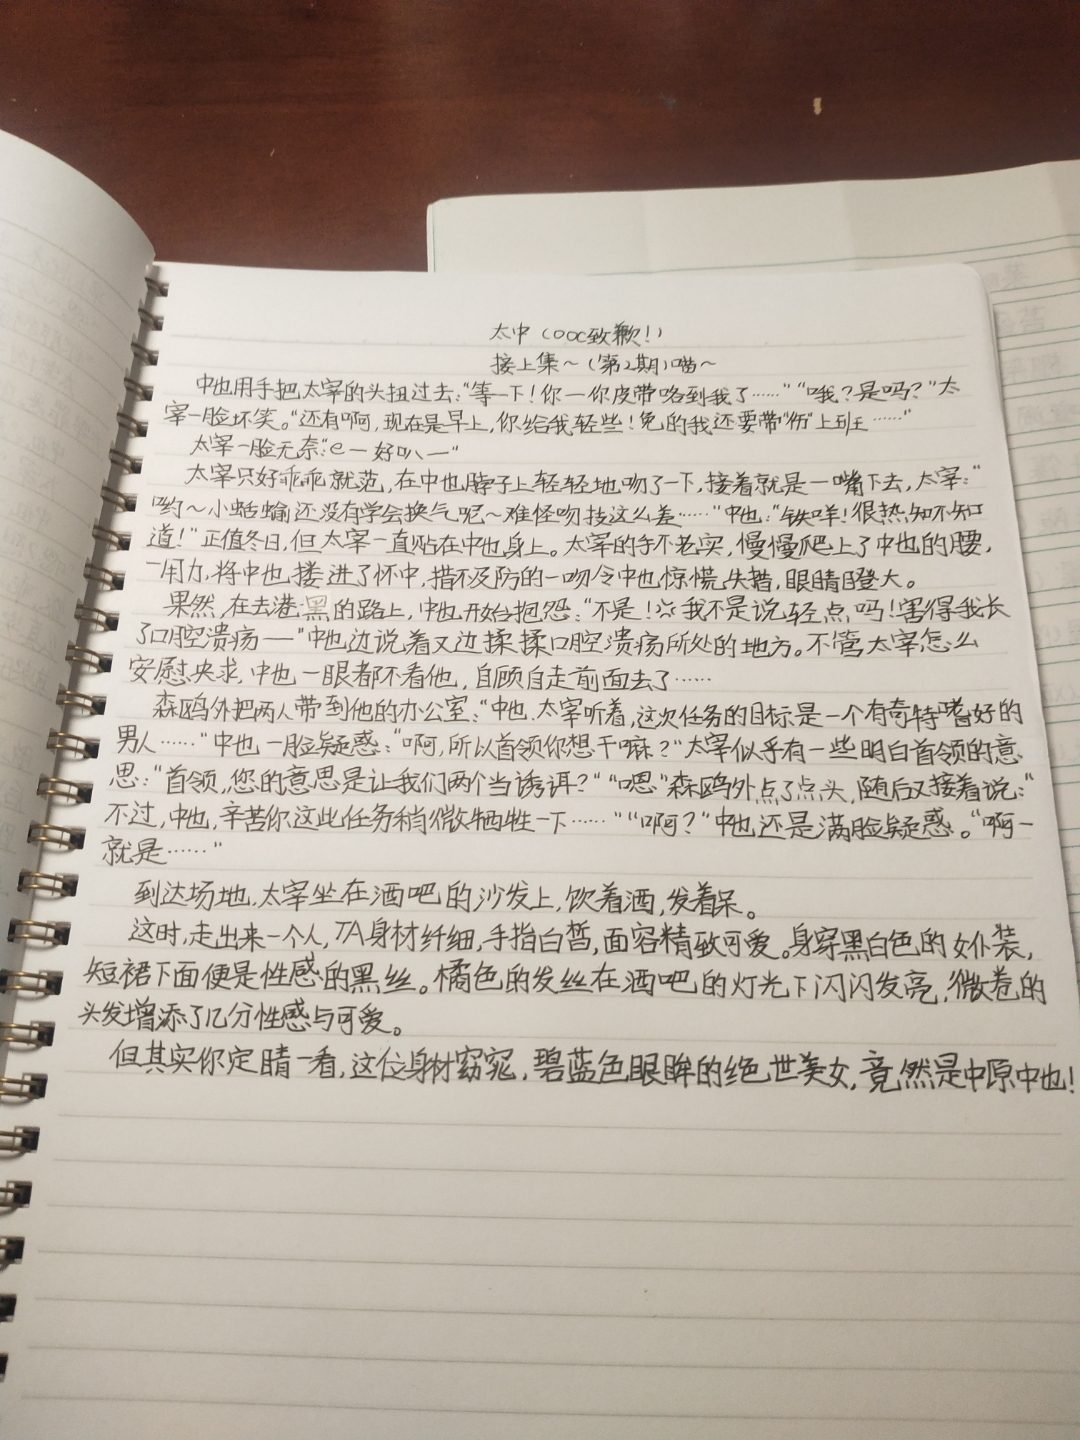 太中（ooc致歉！）
接上集～（第2期）喵～
中也用手把太宰的头扭过去：“等一下！你一你皮带咯到我了……”“哦？是吗？”太
宰一脸坏笑。“还有啊，现在是早上，你给我轻些！免的我还要带“伤”上班……”
太宰一脸无奈：“e一好叭一”
太宰只好乖乖就范，在中也脖子上轻轻地吻了一下，接着就是一嘴下去，太宰：“
哟～小蛞蝓还没有学会换气呢～难怪吻技这么差……”中也：“铁咩！很热知不知
道！”正值冬日，但太宰一直贴在中也身上。太宰的手不老实，慢慢爬上了中也的腰，
一用力，将中也搂进了怀中，措不及防的一吻令中也惊慌失措，眼睛瞪大。
果然，在去港黑的路上，中也开始抱怨：“不是！我不是说轻点吗！害得我长
了口腔溃疡——”中也边说着又边揉揉口腔溃疡所处的地方。不管太宰怎么
安慰央求，中也一眼都不看他，自顾自走前面去了……
森鸥外把两人带到他的办公室：“中也、太宰听着，这次任务的目标是一个有奇特嗜好的
男人……”中也一脸疑惑：“啊，所以首领你想干嘛？”太宰似乎有一些明白首领的意
思：“首领，您的意思是让我们两个当诱饵？”“嗯”森鸥外点了点头，随后又接着说：“
不过，中也，辛苦你这此任务稍微牺牲一下……”“啊？”中也还是满脸疑惑。“啊一
就是……”
到达场地，太宰坐在酒吧的沙发上，饮着酒，发着呆。
这时，走出来一个人，TA身材纤细，手指白皙，面容精致可爱。身穿黑白色的女仆装，
短裙下面便是性感的黑丝。橘色的发丝在酒吧的灯光下闪闪发亮，微卷的
头发增添了几分性感与可爱。
但其实你定睛一看，这位身材窈窕，碧蓝色眼眸的绝世美女，竟然是中原中也！